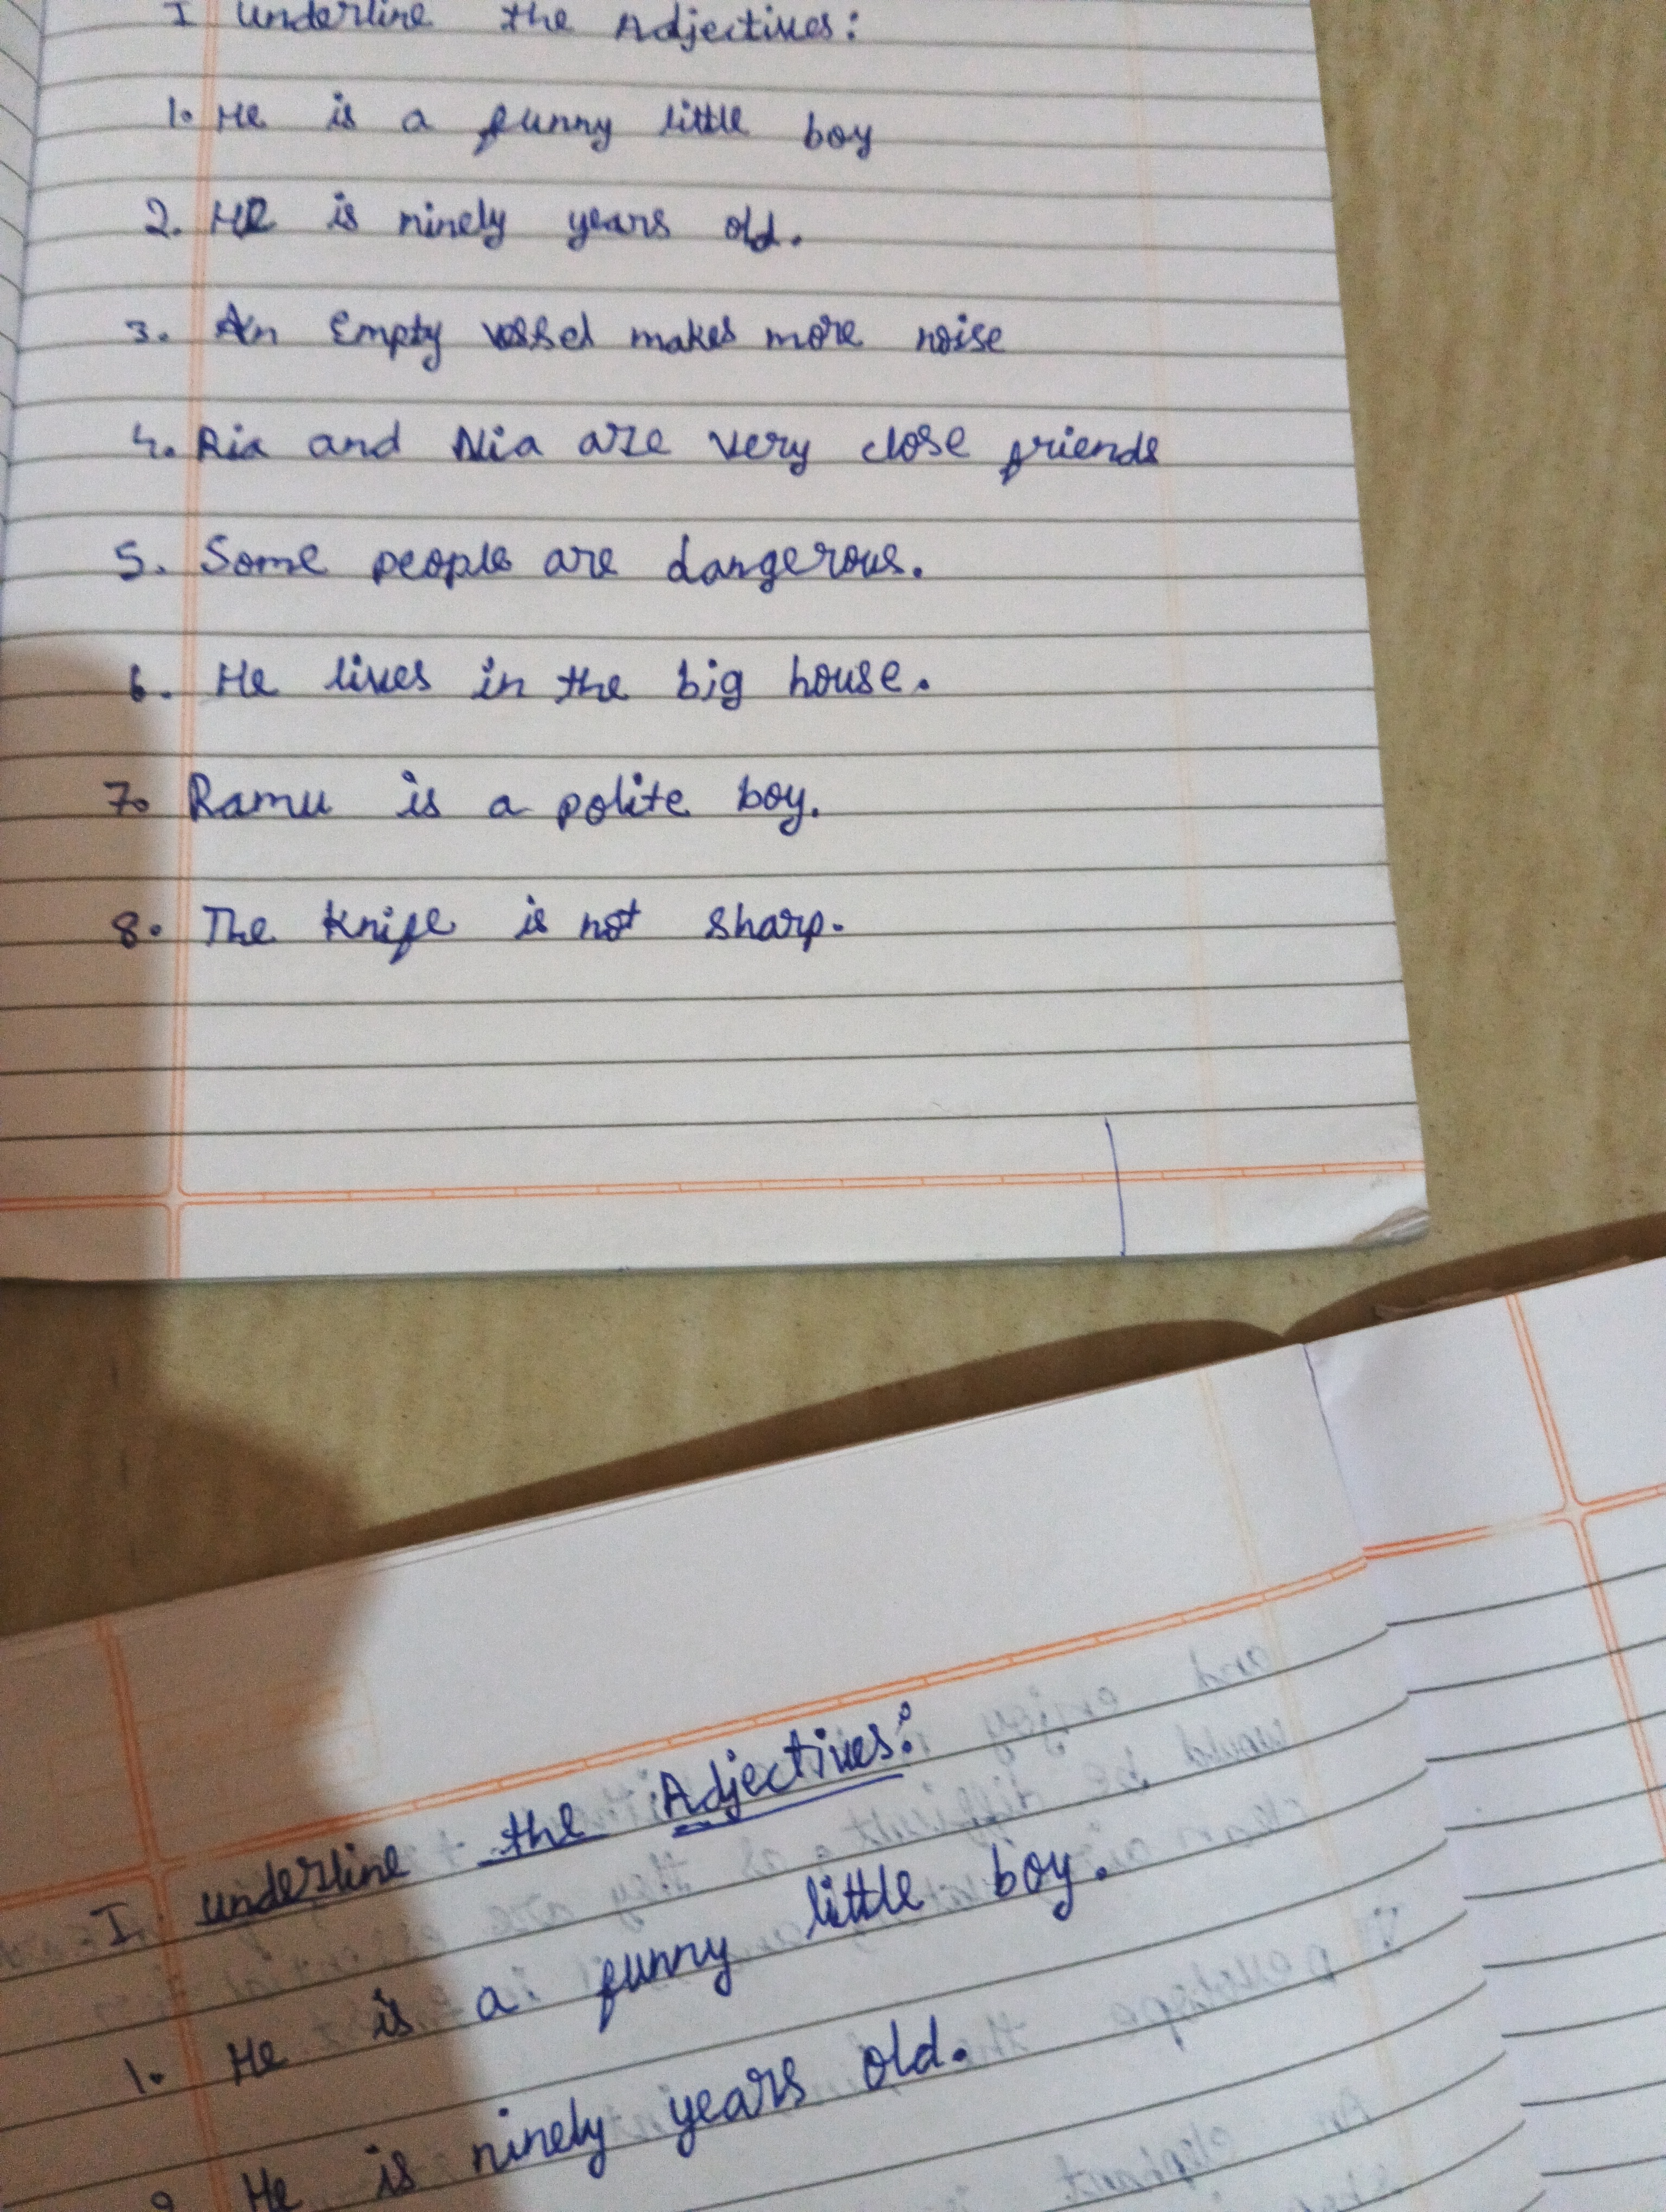 I underline the Adjectives:
1. He is a funny little boy
2. He is ninely years old.
3. An Empty vessel makes more noise
4. Ria and Nia are very close friends
5. Some people are dangerous.
6. He lives in the big house.
7. Ramu is a polite boy.
8. The Knife is not sharp.
I. underline the Adjectives:
1. He is a funny little boy.
He is ninely years old.